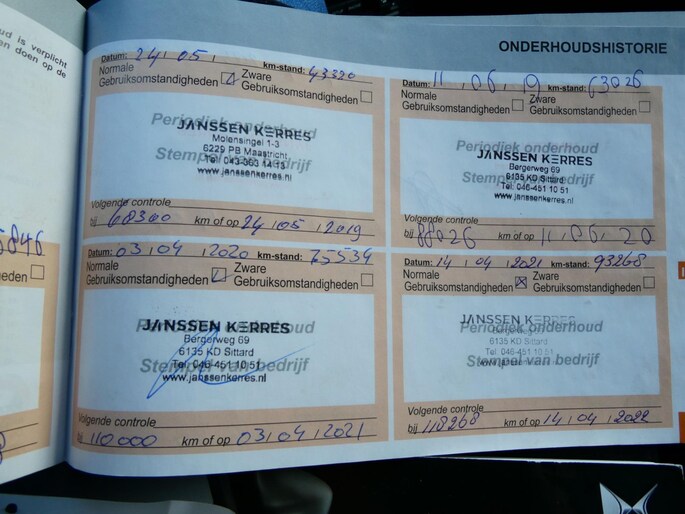 ud is verplicht
en doen op de
5846
eden
ONDERHOUDSHISTORIE
Datum: 24 , 05 , km-stand: 43320
Normale Gebruiksomstandigheden
Zware Gebruiksomstandigheden
Periodiek onderhoud
Stempel van bedrijf
JANSSEN KERRES
Molensingel 1-3
6229 PB Maastricht
Tel
www.janssenkerres.nl
Volgende controle
bij 68300 km of op 24 , 05 , 2019
Datum: 11 , 06 , 19 km-stand: 63026
Normale Gebruiksomstandigheden
Zware Gebruiksomstandigheden
Periodiek onderhoud
Stempel van bedrijf
JANSSEN KERRES
Bergerweg 69
6135 KD Sittard
Tel. 046-451 10 51
www.janssenkerres.nl
Volgende controle
bij 88026 km of op 11 , 06 , 20
Datum: 03 , 04 , 2020 km-stand: 75534
Normale Gebruiksomstandigheden
Zware Gebruiksomstandigheden
Periodiek onderhoud
Stempel van bedrijf
JANSSEN KERRES
Bergerweg 69
6135 KD Sittard
Tel. 046-451 10 51
www.janssenkerres.nl
Volgende controle
bij 110.000 km of op 03 , 04 , 2021
Datum: 14 , 04 , 2021 km-stand: 93268
Normale Gebruiksomstandigheden
Zware Gebruiksomstandigheden
Periodiek onderhoud
Stempel van bedrijf
JANSSEN KERRES
Bergerweg 69
6135 KD Sittard
Tel. 046-451 10 51
Volgende controle
bij 118268 km of op 14 , 04 , 2022